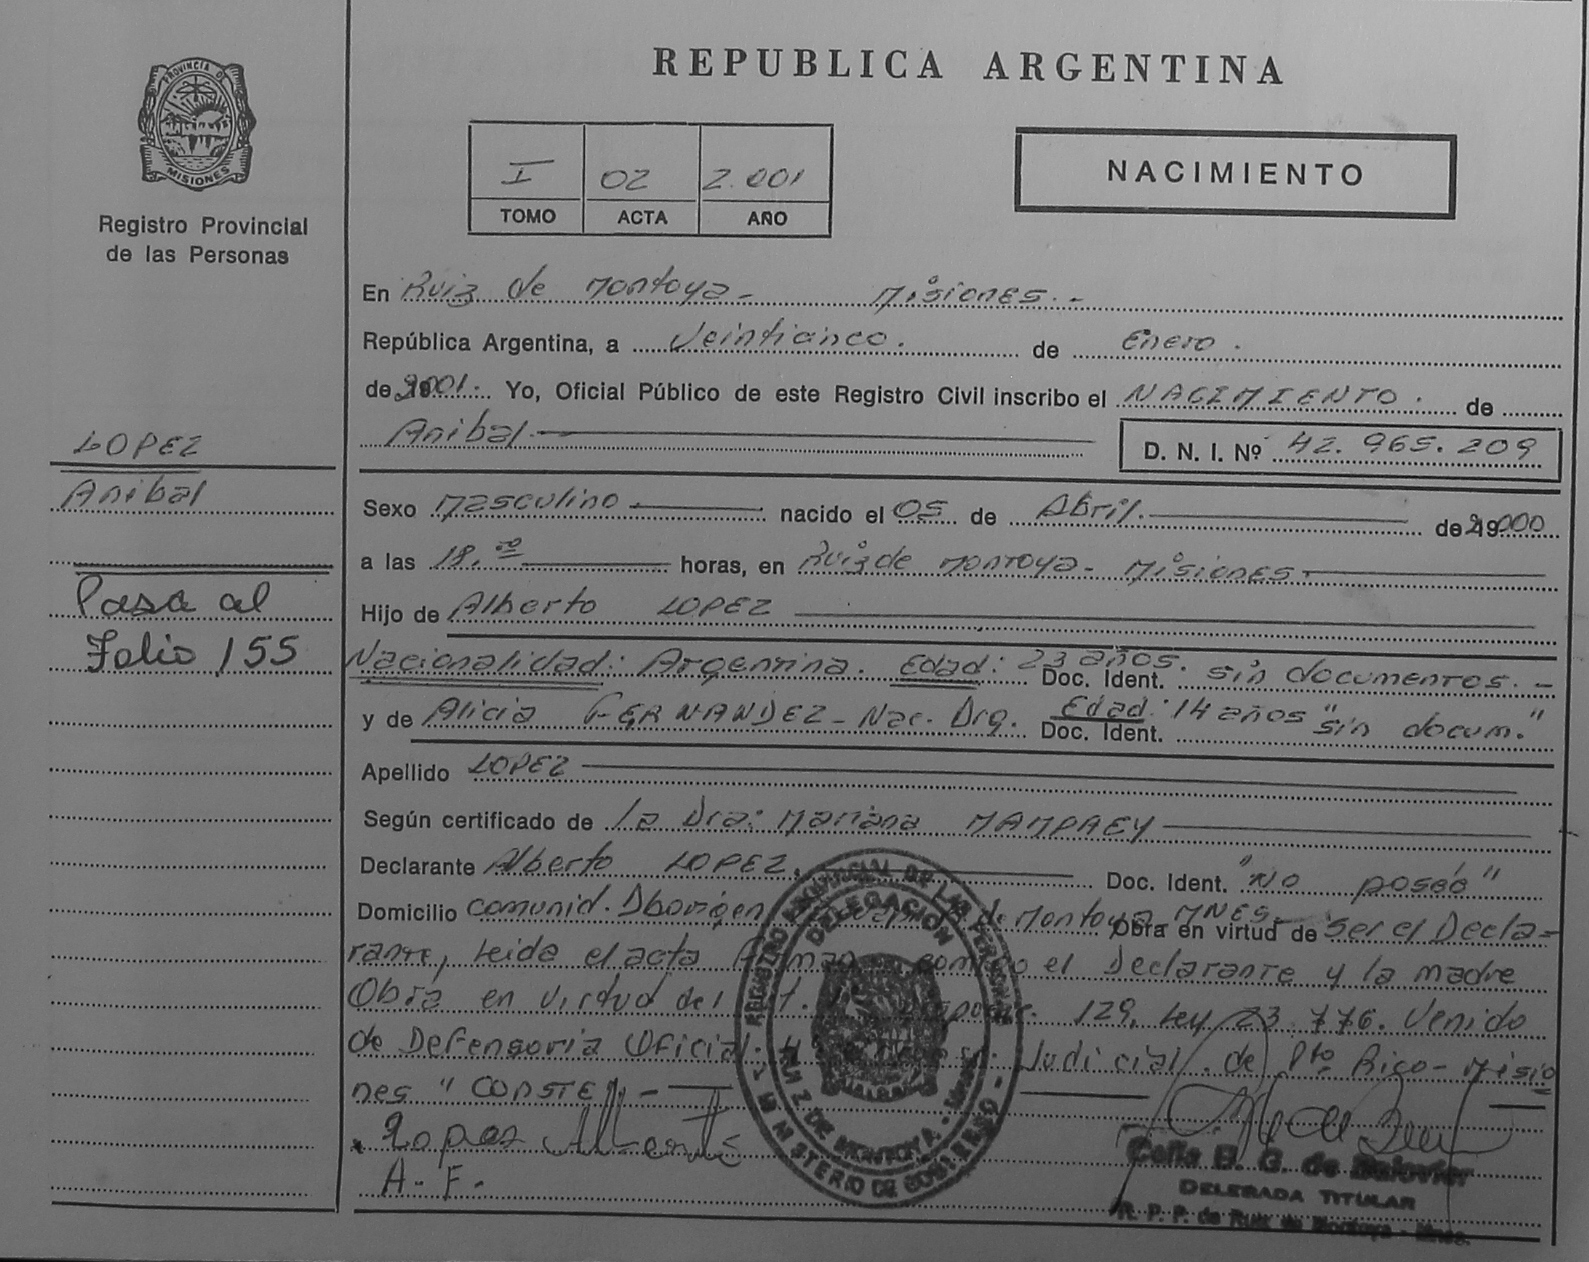 REPUBLICA ARGENTINA
PROVINCIA DE
MISIONES
Registro Provincial
de las Personas
I 02 2.001
TOMO ACTA AÑO
NACIMIENTO
LOPEZ
Anibal
Pasa al
Folio 155
En Ruiz de Montoya - Misiones. -
República Argentina, a Veinticinco. de Enero.
de 2001. Yo, Oficial Público de este Registro Civil inscribo el NACIMIENTO. de
Anibal. D. N. I. Nº 42. 965. 209
Sexo Masculino nacido el 05 de Abril. de 2000
a las 18.00 horas, en Ruiz de Montoya - Misiones -
Hijo de Alberto LOPEZ
Nacionalidad: Argentina. Edad: 23 años. Doc. Ident. sin documentos. -
y de Alicia FERNANDEZ - Nac. Arg. Edad: 14 años Doc. Ident. "sin docum."
Apellido LOPEZ
Según certificado de la Dra: Mariana MAMPAEY
Declarante Alberto LOPEZ. Doc. Ident. "No posee"
Domicilio Comunid. Aborigen de Montoya - MNES - Obra en virtud de ser el Decla=
rante, leida el acta el Declarante y la madre
Obra en virtud del 129, Ley 23.776. Venido
de Defensoria Oficial. Judicial. de Pto Rico - Misio=
nes " CONSTE " -
Lopez Alberto
A. F.
REGISTRO PROVINCIAL DE LAS PERSONAS
DELEGACION
RUIZ DE MONTOYA - Mnes
MINISTERIO DE GOBIERNO
Celia B. G. de
DELEGADA TITULAR
R. P. P. de Ruiz de Montoya - Mnes.